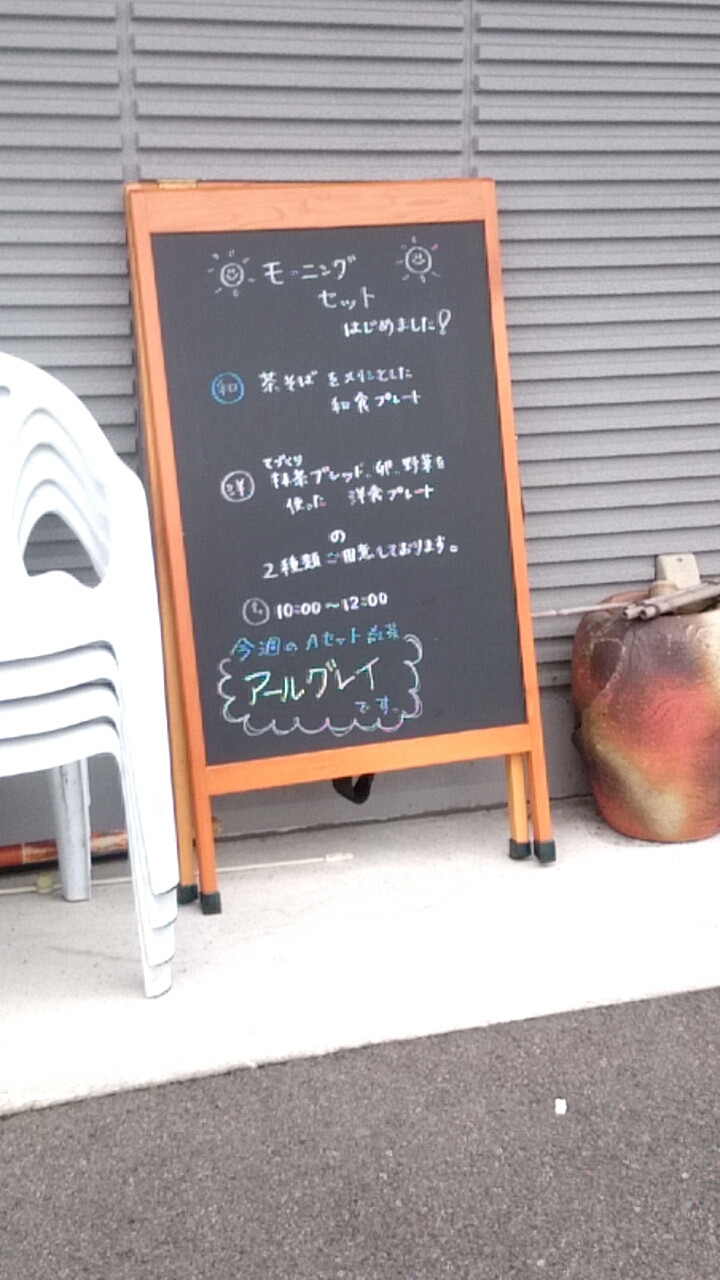 モーニング
セット
はじめました!
和 茶そば をメインとした
和食プレート
てづくり
洋 抹茶ブレッド、卵、野菜を
使った 洋食プレート
の
2種類ご用意しております。
10:00～12:00
今週のAセット
アールグレイ
です。